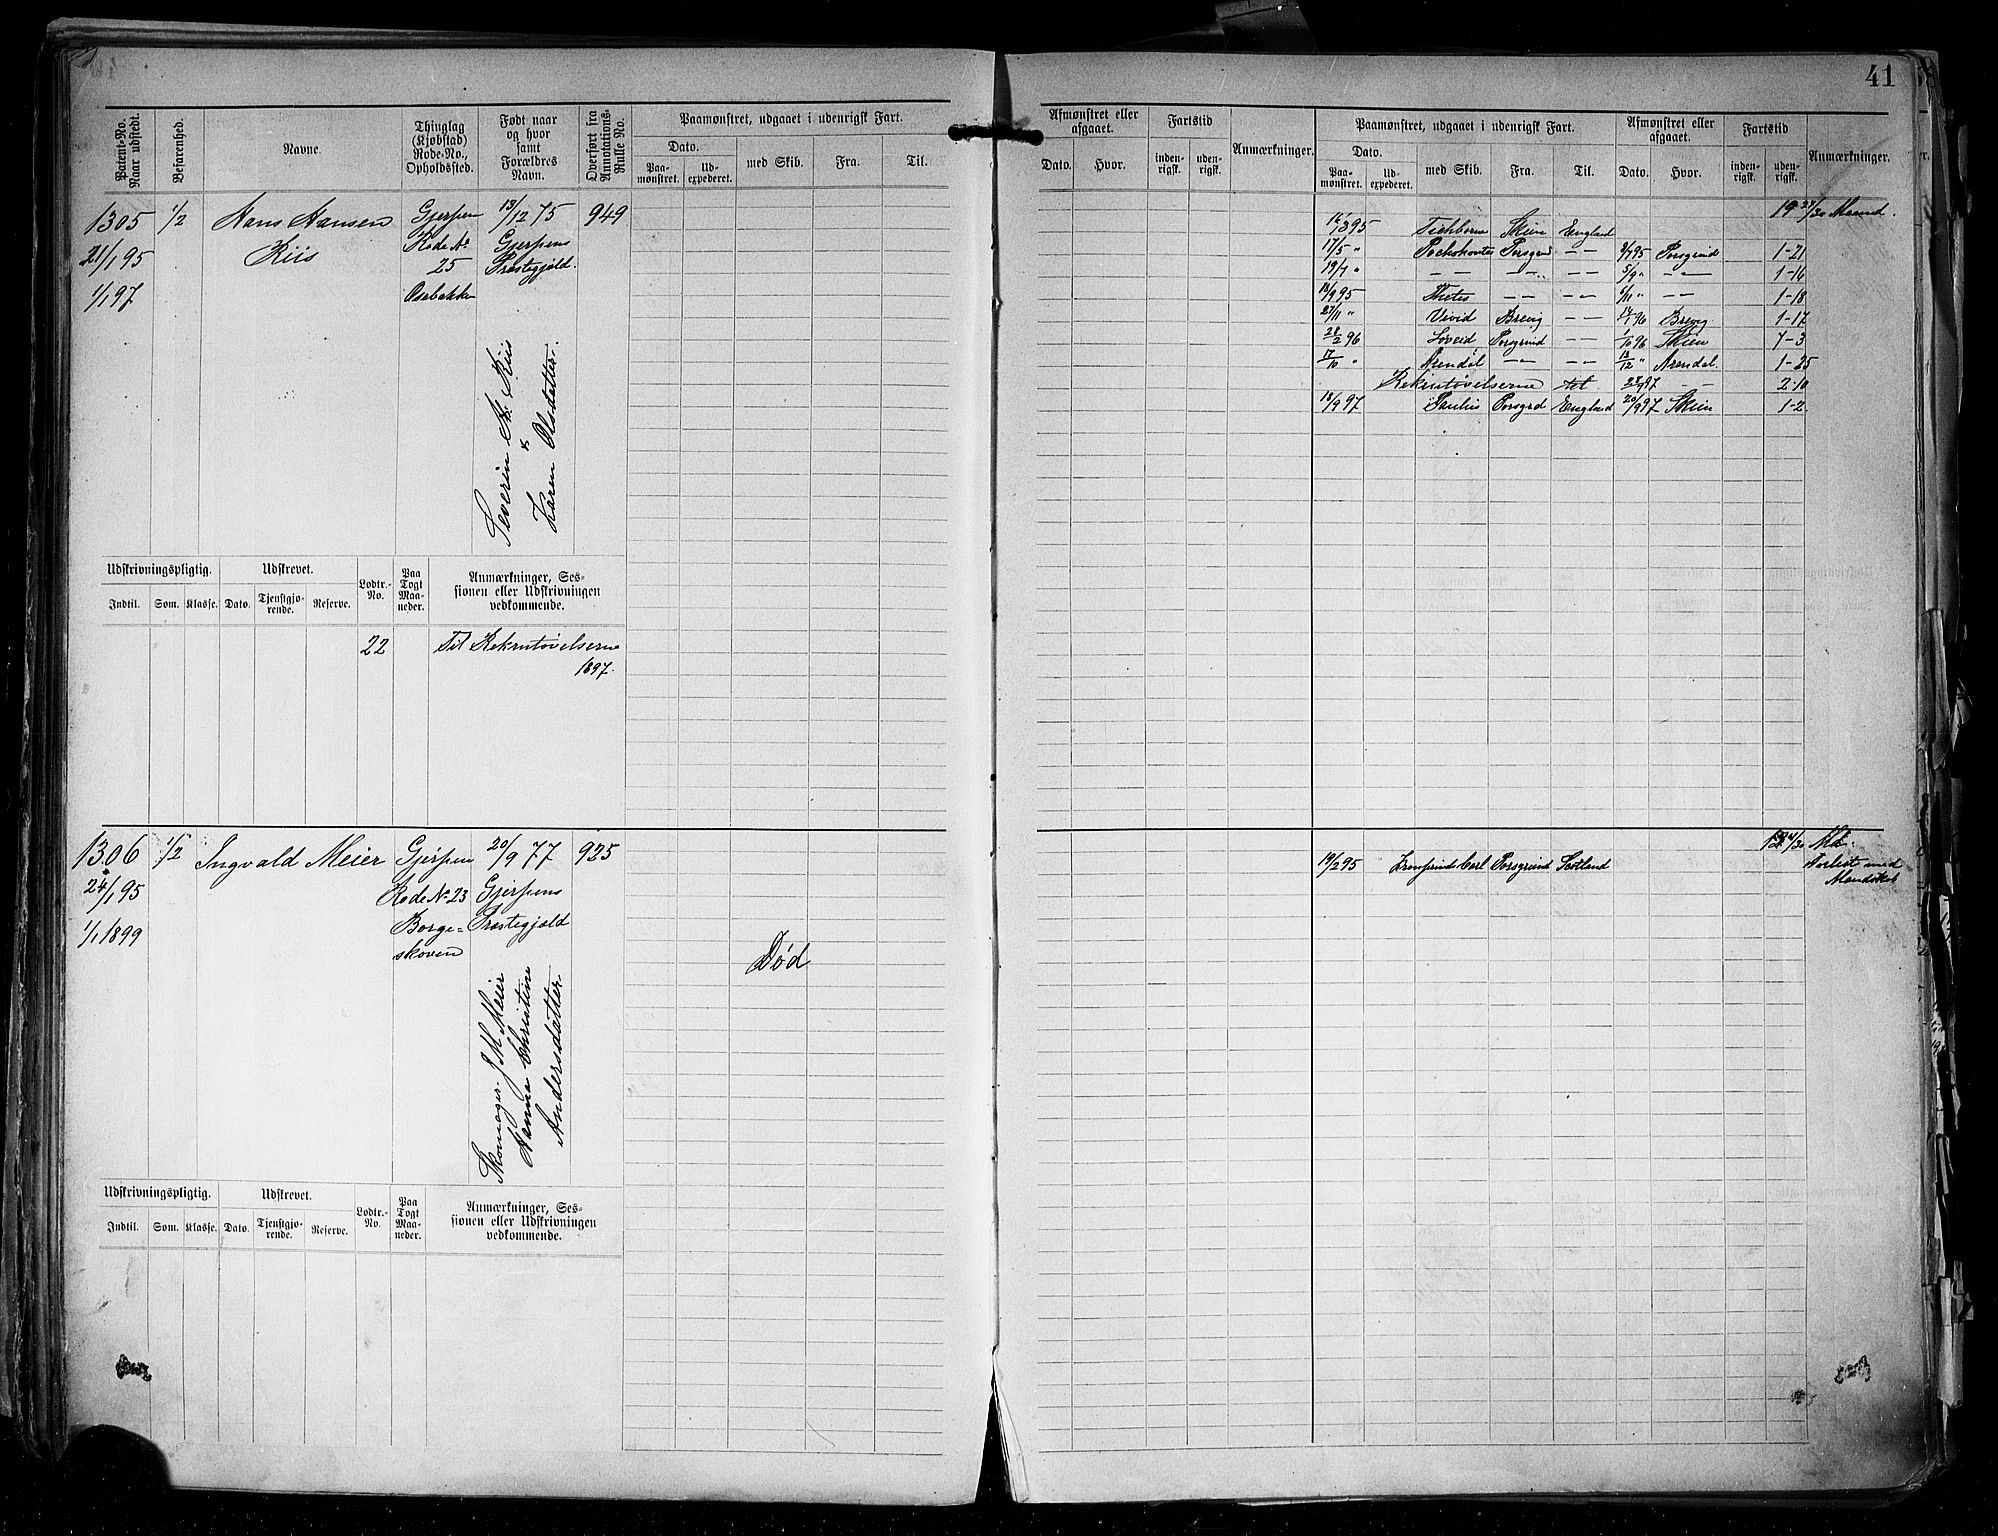 41
Patent-No. Naar udstedt.
Befarenhed.
Navne.
Thinglag (Kjøbstad) Rode-No., Opholdssted.
Født naar og hvor samt Forældres Navn.
Overført fra Annotations-Rulle No.
Paamønstret, udgaaet i udenrigsk Fart.
Dato.
Paamønstret.
Udexpederet.
med Skib.
Fra.
Til.
Afmønstret eller afgaaet.
Dato.
Hvor.
Fartstid
indenrigsk.
udenrigsk.
Anmærkninger.
Paamønstret, udgaaet i udenrigsk Fart.
Dato.
Paamønstret.
Udexpederet.
med Skib.
Fra.
Til.
Afmønstret eller afgaaet.
Dato.
Hvor.
Fartstid
indenrigsk.
udenrigsk.
Anmærkninger.
1305 1/2 Hans Hansen Gjerpen 13/12 75 949
21/1 95 Kiis Rode No Gjerpens
25 Præstegjeld.
1/1 97 Osebakken
Severin H. Kiis
&
Karen Olsdatter.
19 27/30 Maaned.
95 Skien England
17/5 " Pochohontes Porsgrund — — 95 Porsgrund 1-21
19/7 " — — — — — — 5/9 " — " — 1-16
18/9 95 Thetis — — — — 6/11 " — — 1-18
27/11 " Vivid Brevig — — 14/1 96 Brevig 1-17
28/2 96 Løveid Porsgrund — — 1/10 96 Skien 7-3
17/10 " Arendal — — — — 18/12 " Arendal. 1-25
Rekrutøvelserne 97 — — 2-10
18/9 97 Paulus Porsgrd England 20/9 97 Skien 1-2
Udskrivningspligtig. Udskrevet. Lodtr.-No. Paa Togt Maaneder. Anmærkninger, Sessionen eller Udskrivningen vedkommende.
Indtil. Som. Klasse. Dato. Tjenstgjørende. Reserve.
22 Til Rekrutøvelserne
1897.
1306 1/2 Ingvald Meier Gjerpen 20/9 77 925
24/1 95 Rode No 23 Gjerpens
1/1 1899 Borge= Præstegjeld
skoven
Død
Skomager J. M. Meier
Hanna Christine
Andersdatter.
19/2 95 Kronprinds Carl Porsgrund Scotland
Forlist med
Mandskab
Udskrivningspligtig. Udskrevet. Lodtr.-No. Paa Togt Maaneder. Anmærkninger, Sessionen eller Udskrivningen vedkommende.
Indtil. Som. Klasse. Dato. Tjenstgjørende. Reserve.